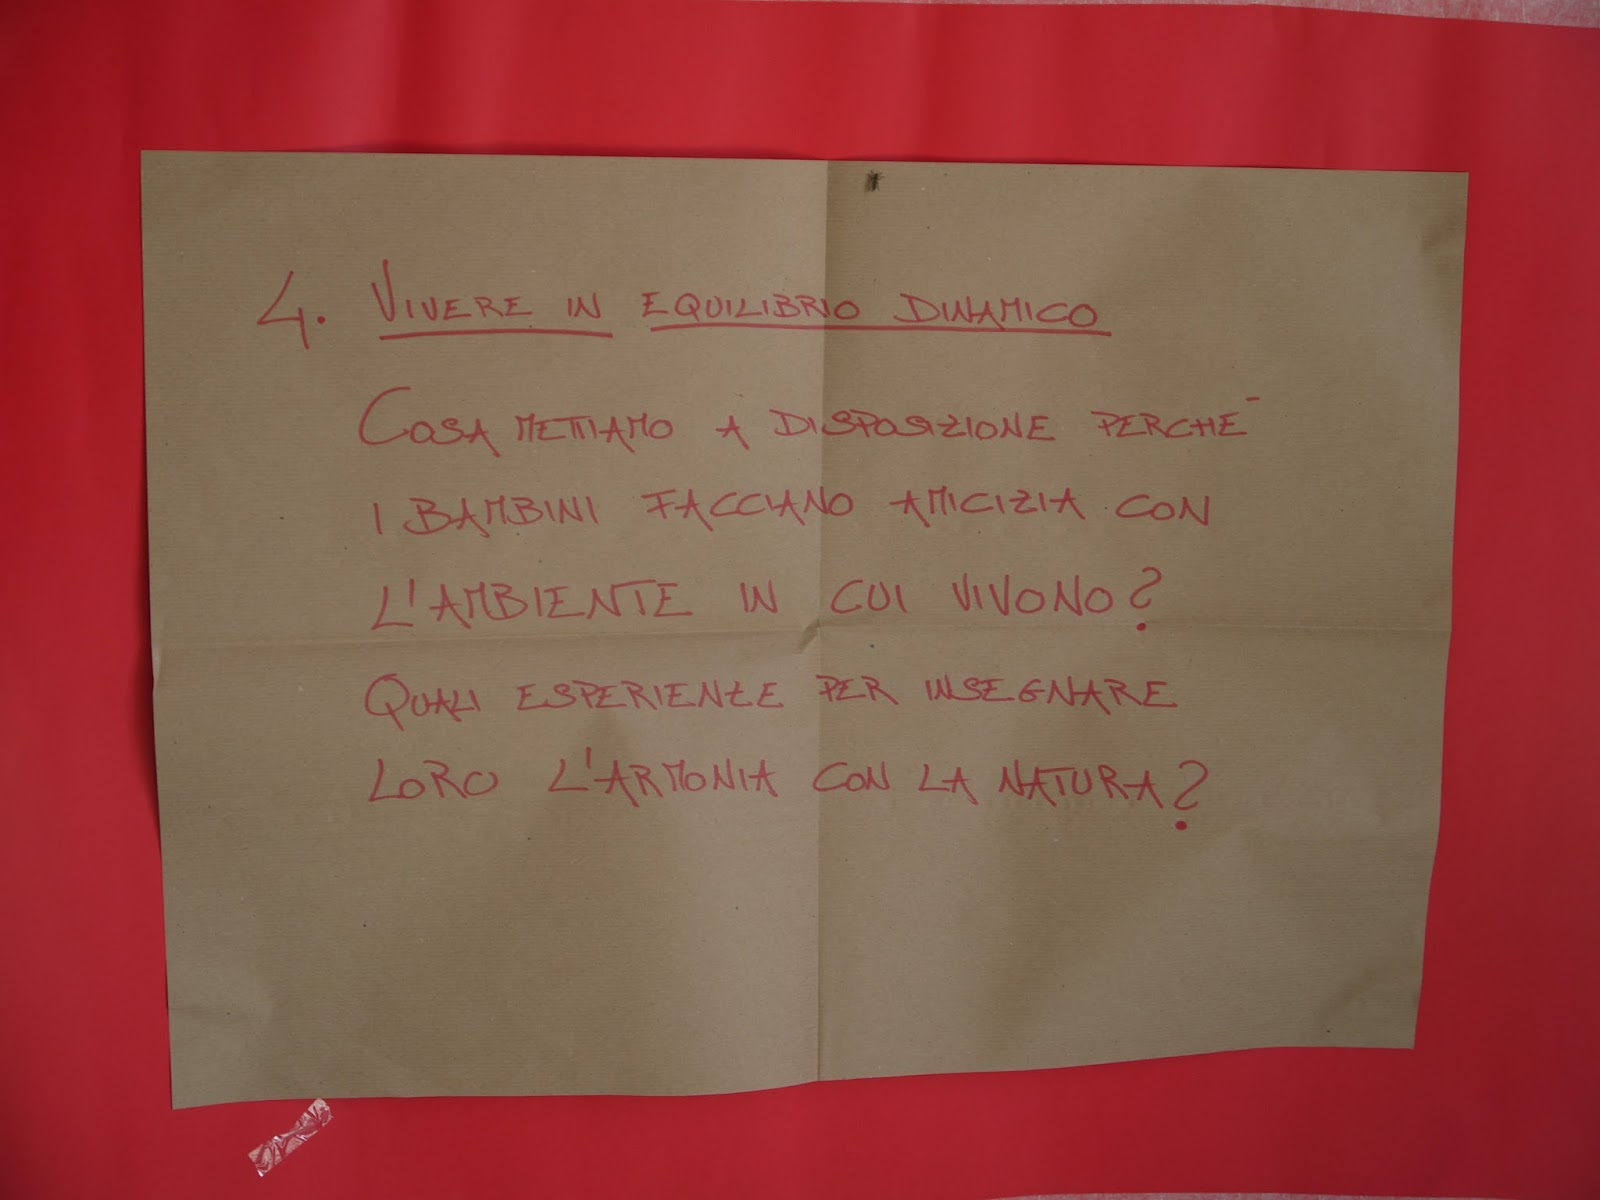 4. VIVERE IN EQUILIBRIO DINAMICO
COSA METTIAMO A DISPOSIZIONE PERCHÉ
I BAMBINI FACCIANO AMICIZIA CON
L'AMBIENTE IN CUI VIVONO?
QUALI ESPERIENZE PER INSEGNARE
LORO L'ARMONIA CON LA NATURA?